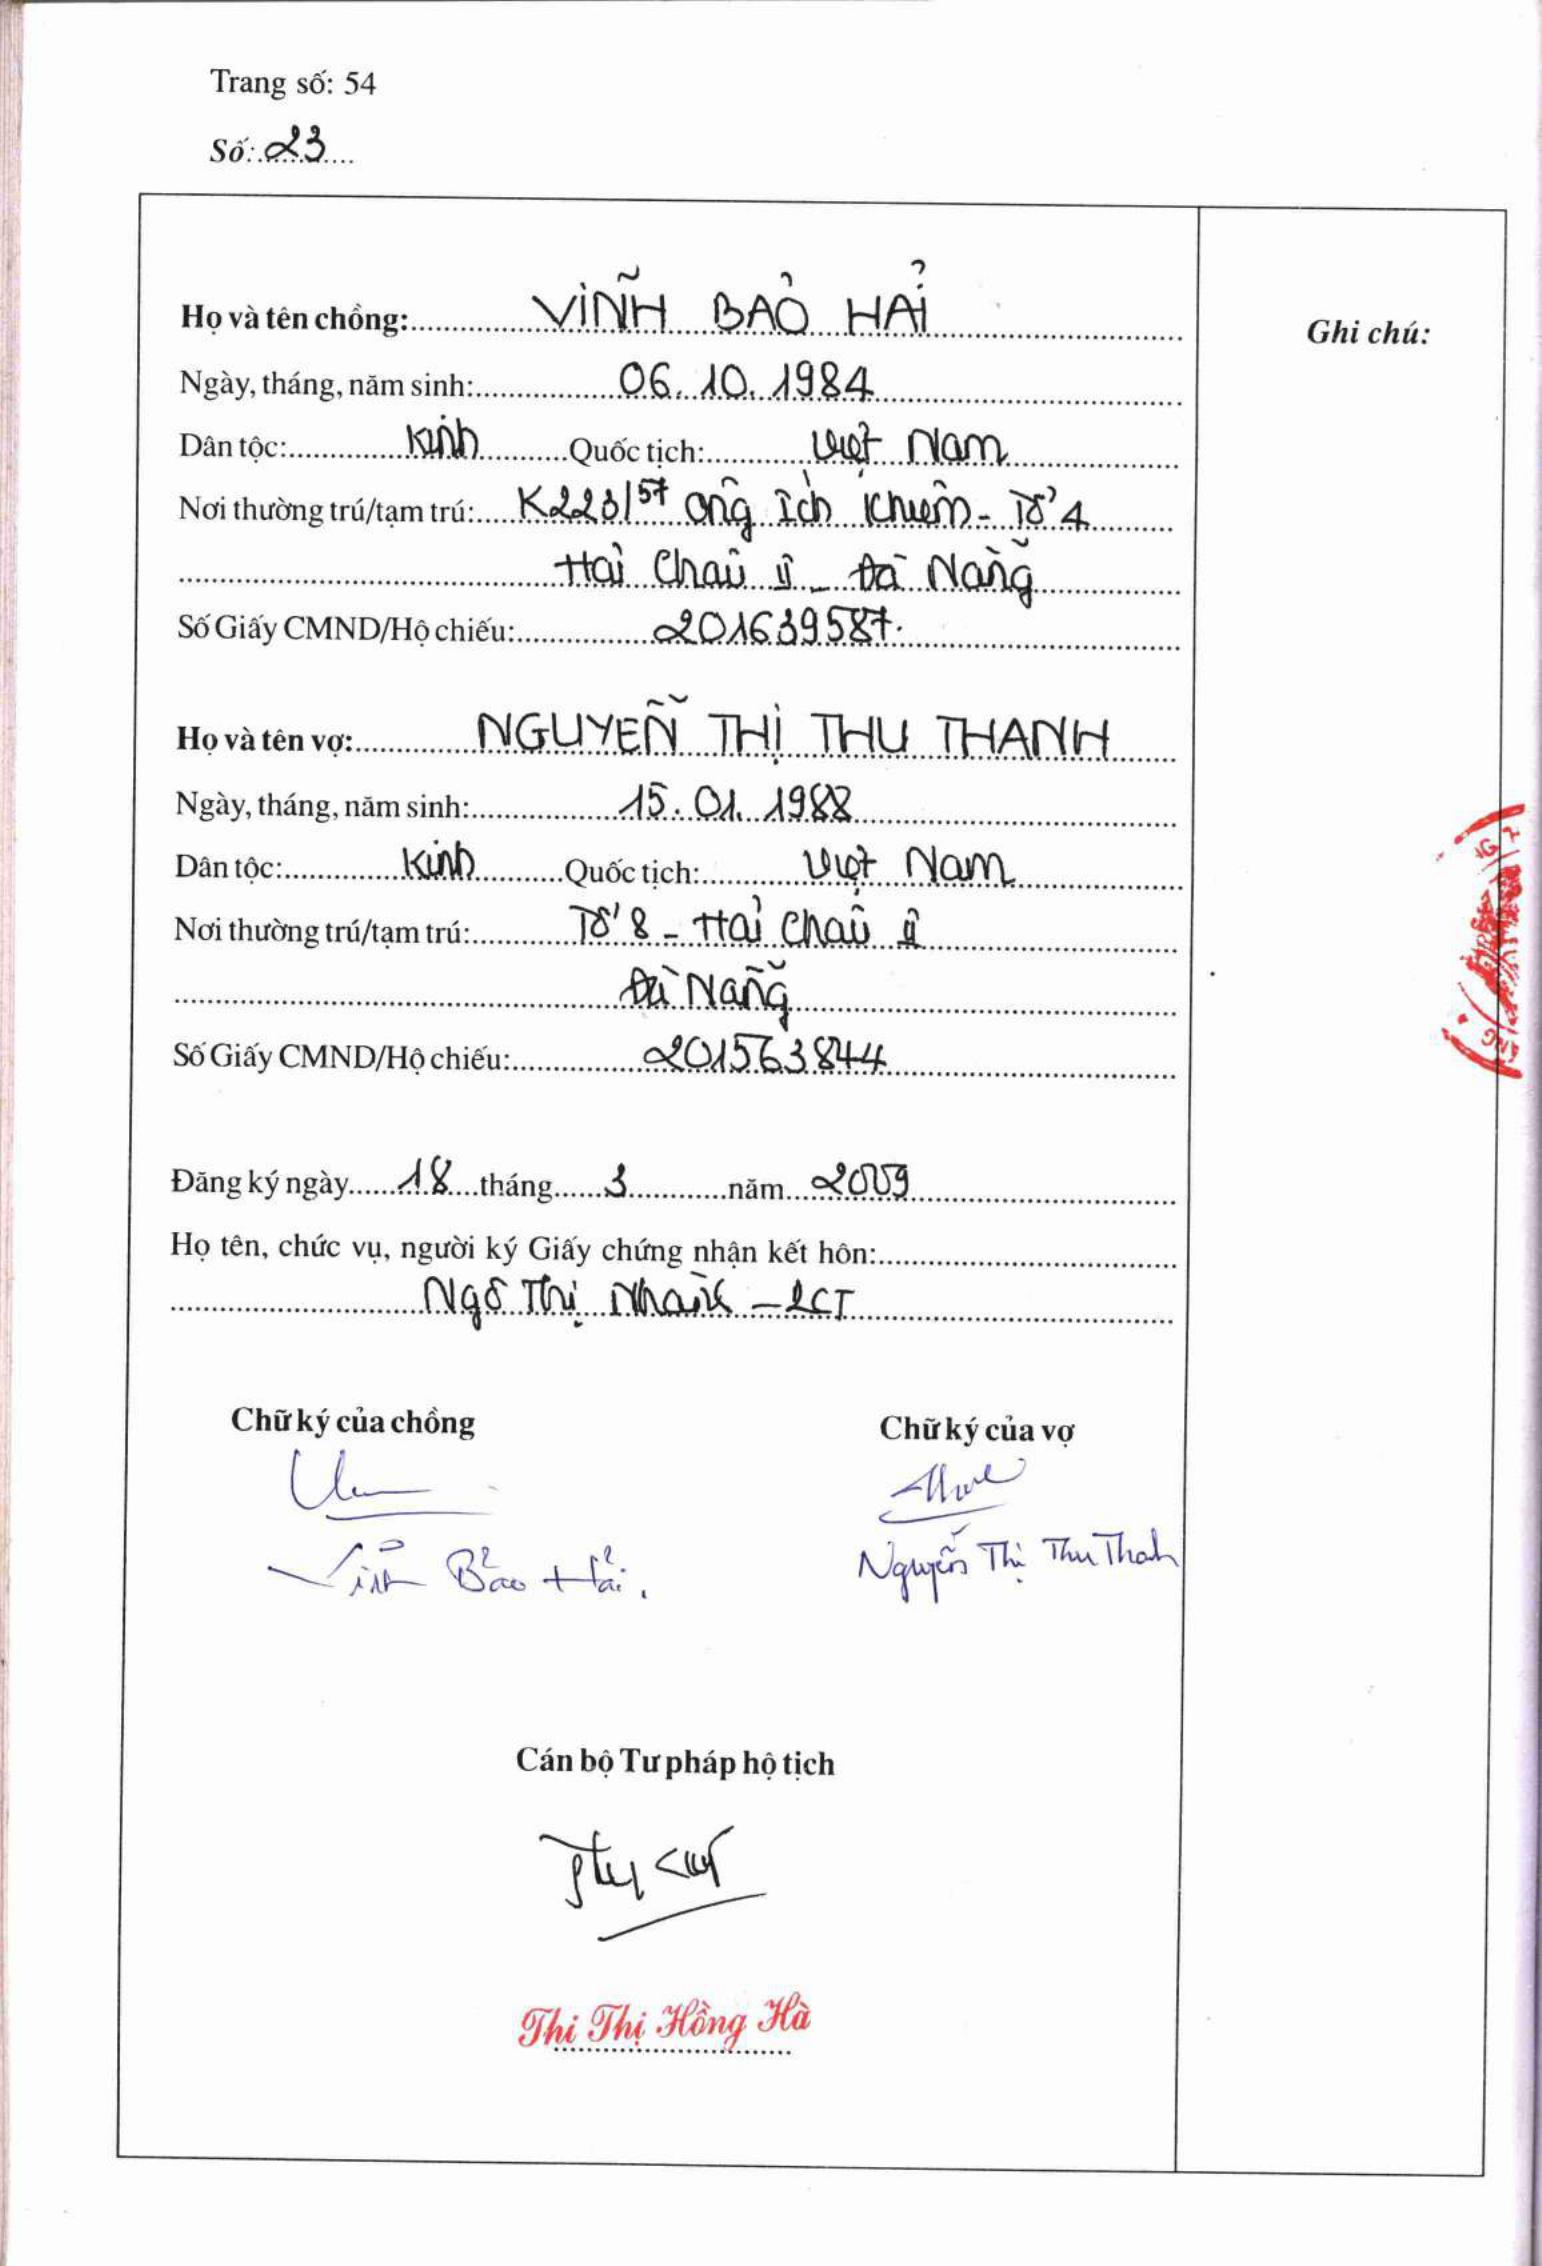 Trang số: 54
Số: 23
Họ và tên chồng: VĨNH BẢO HẢI
Ghi chú:
Ngày, tháng, năm sinh: 06.10.1984
Dân tộc: Kinh Quốc tịch: Việt Nam
Nơi thường trú/tạm trú: K223/57 Ông Ích Khiêm - Tổ 4
Hải Châu II - Đà Nẵng
Số Giấy CMND/Hộ chiếu: 201639587.
Họ và tên vợ: NGUYỄN THỊ THU THANH
Ngày, tháng, năm sinh: 15.01.1988
Dân tộc: Kinh Quốc tịch: Việt Nam
Nơi thường trú/tạm trú: Tổ 8 - Hải Châu II
Đà Nẵng
Số Giấy CMND/Hộ chiếu: 201563844
Đăng ký ngày 18 tháng 3 năm 2009
Họ tên, chức vụ, người ký Giấy chứng nhận kết hôn:
Ngô Thị - PCT
Chữ ký của chồng Chữ ký của vợ
Vĩnh Bảo Hải. Nguyễn Thị Thu Thanh
Cán bộ Tư pháp hộ tịch
Thi Thị Hồng Hà